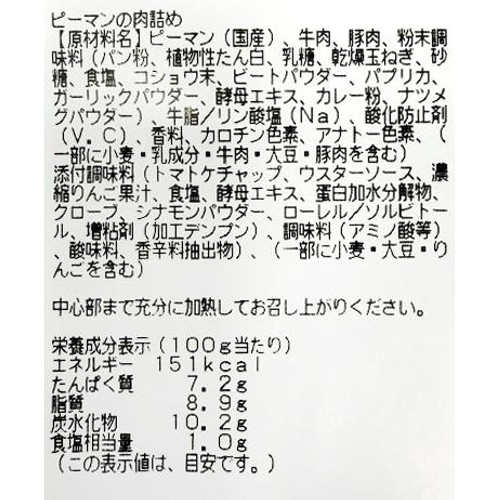 ピーマンの肉詰め
【原材料名】ピーマン（国産）、牛肉、豚肉、粉末調
味料（パン粉、植物性たん白、乳糖、乾燥玉ねぎ、砂
糖、食塩、コショウ末、ビートパウダー、パプリカ、
ガーリックパウダー、酵母エキス、カレー粉、ナツメ
グパウダー）、牛脂／リン酸塩（Ｎａ）、酸化防止剤
（Ｖ．Ｃ）、香料、カロチン色素、アナトー色素、（
一部に小麦・乳成分・牛肉・大豆・豚肉を含む）
添付調味料（トマトケチャップ、ウスターソース、濃
縮りんご果汁、食塩、酵母エキス、蛋白加水分解物、
クローブ、シナモンパウダー、ローレル／ソルビトー
ル、増粘剤（加工デンプン）、調味料（アミノ酸等）
、酸味料、香辛料抽出物）、（一部に小麦・大豆・り
んごを含む）
中心部まで充分に加熱してお召し上がりください。
栄養成分表示（１００ｇ当たり）
エネルギー　１５１ｋｃａｌ
たんぱく質　７．２ｇ
脂質　８．９ｇ
炭水化物　１０．２ｇ
食塩相当量　１．０ｇ
（この表示値は、目安です。）